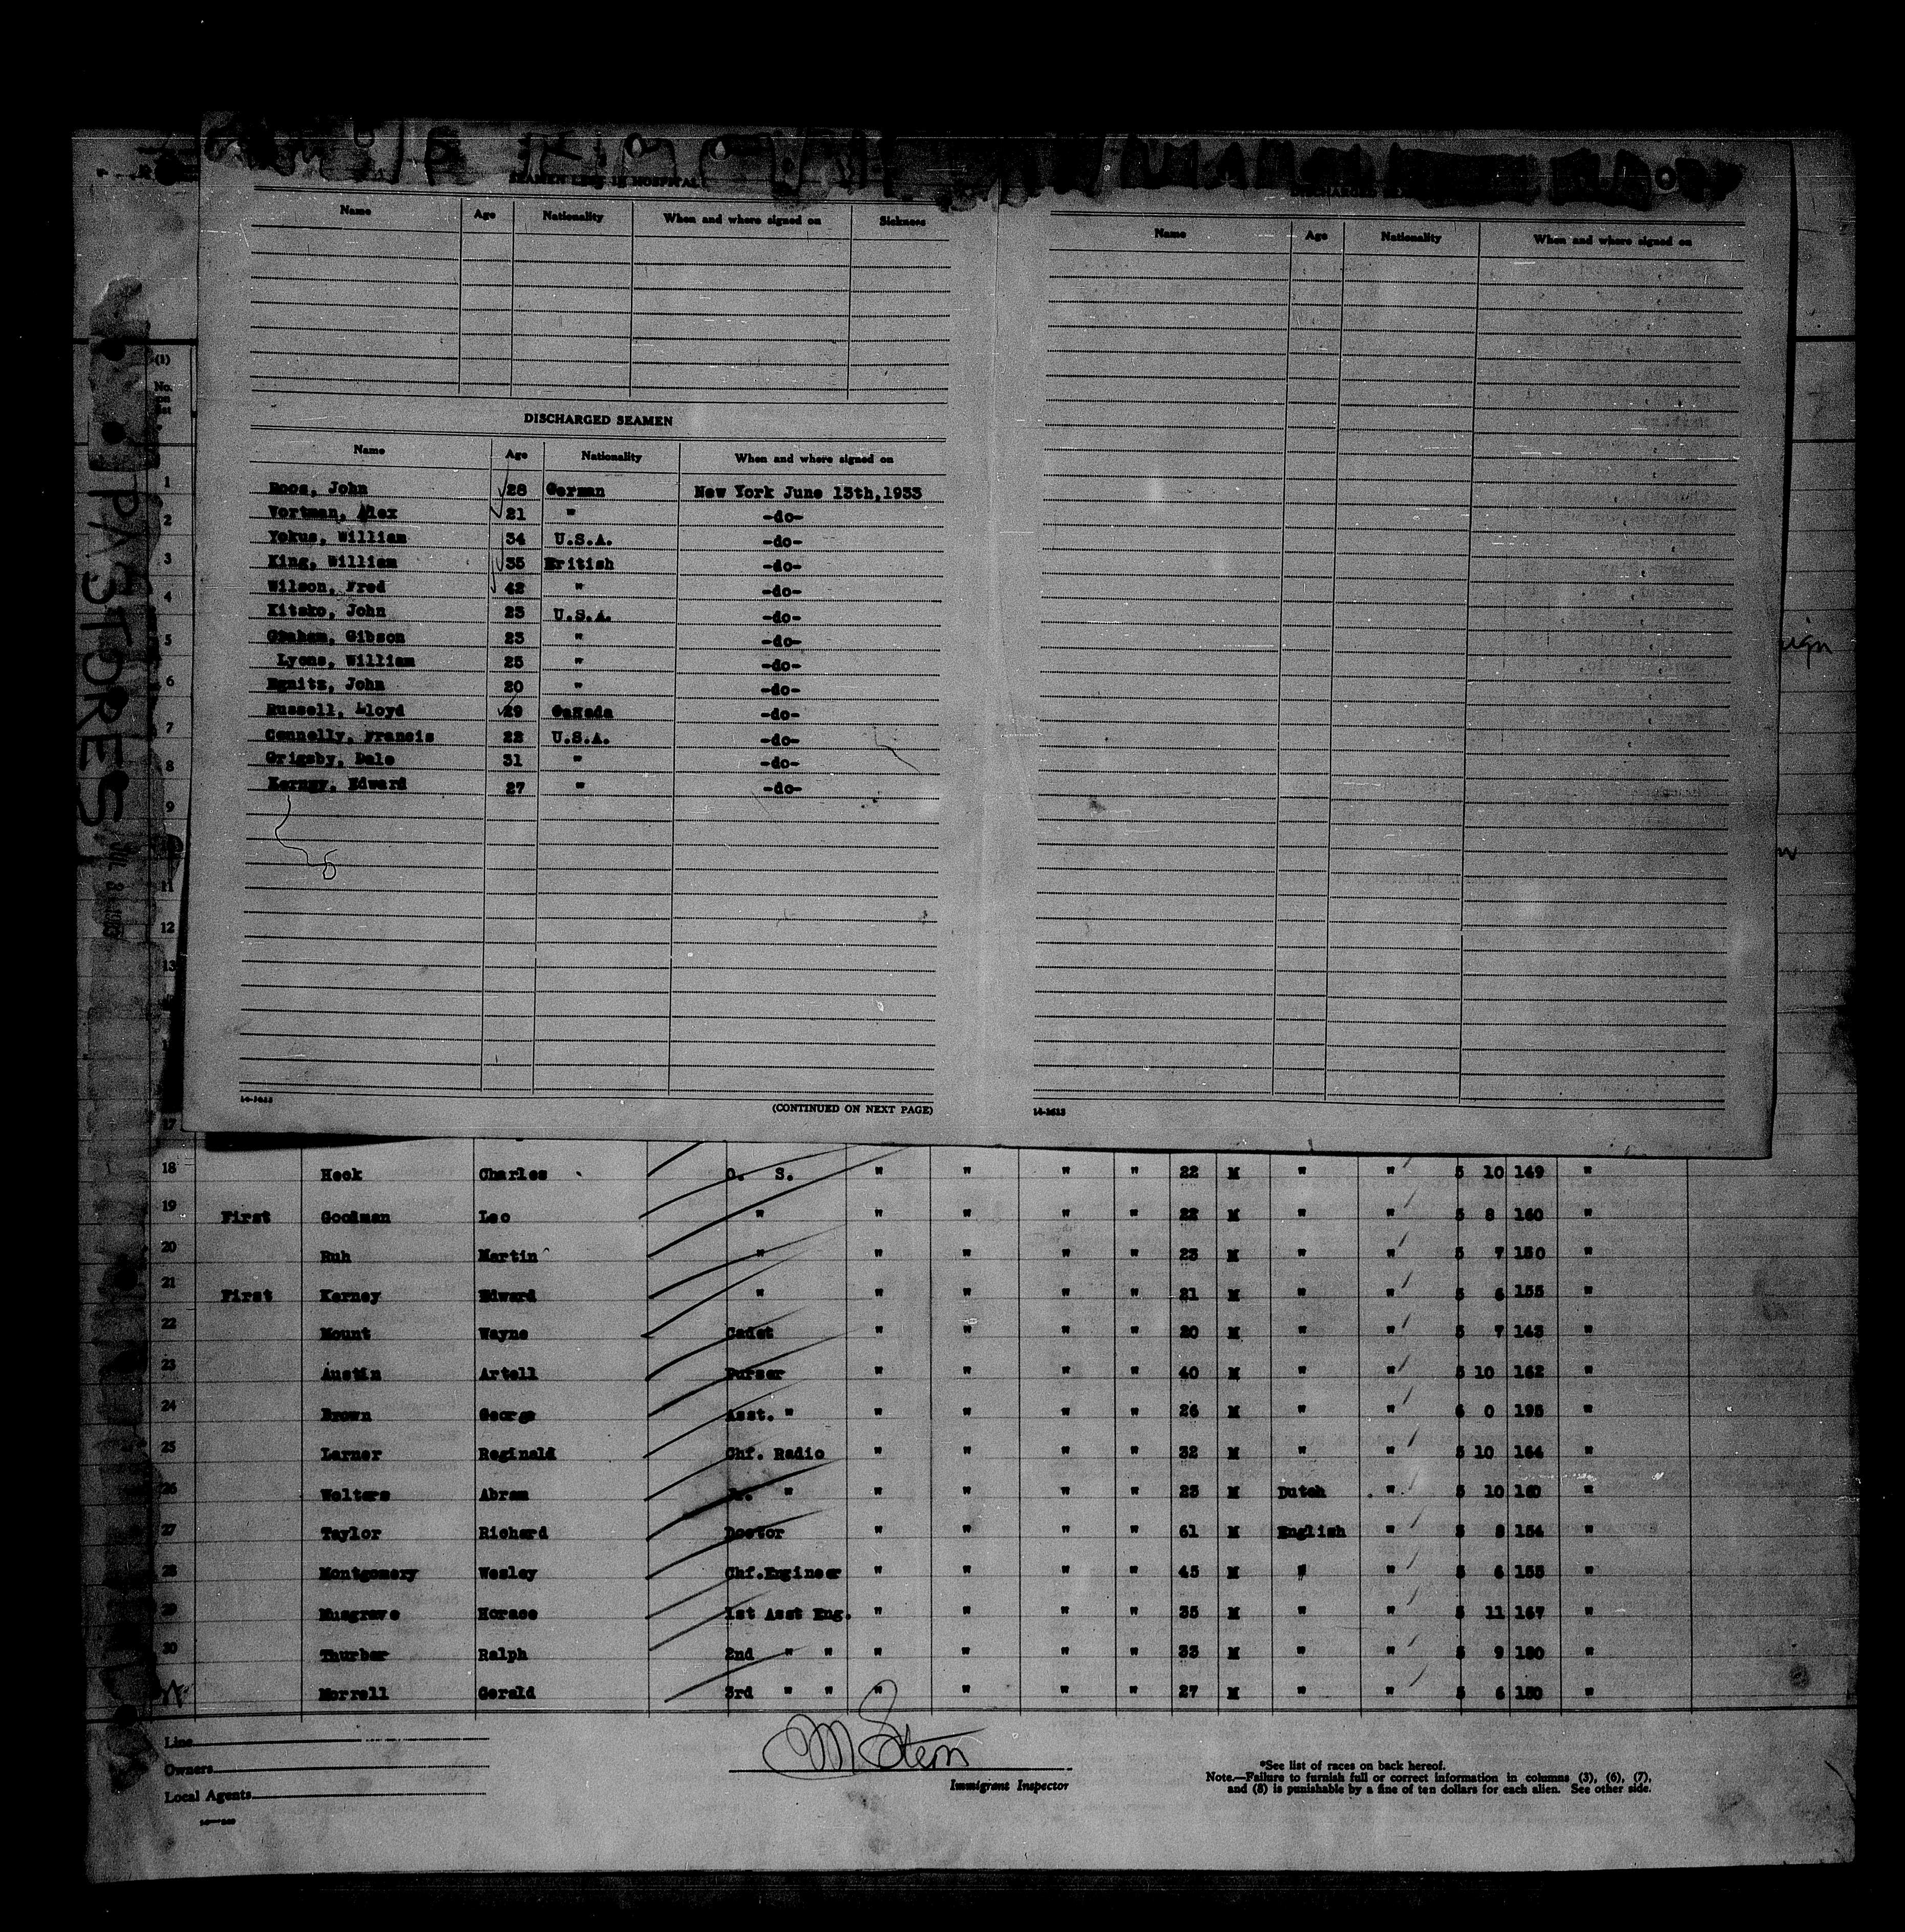 SEAMEN LEFT IN HOSPITAL
Name Age Nationality When and where signed on Sickness
DISCHARGED SEAMEN
Name Age Nationality When and where signed on
Roos, John 28 German New York June 13th,1933
Vortman, Alex 21 " -do-
Yokus, William 34 U.S.A. -do-
King, William 35 British -do-
Wilson, Fred 42 " -do-
Kitsko, John 23 U.S.A. -do-
Graham, Gibson 23 " -do-
Lyons, William 25 " -do-
Egnitz, John 20 " -do-
Russell, Lloyd 29 Canada -do-
Connelly, Francis 22 U.S.A. -do-
Grigsby, Dale 31 " -do-
Kerney, Edward 27 " -do-
(CONTINUED ON NEXT PAGE)
Name Age Nationality When and where signed on
(1)
No. on list
1
2
3
4
5
6
7
8
9
11
12
13
17
PASTORES
18 Heck Charles O. S. " " " " 22 M " " 5 10 149 "
19 First Goodman Leo " " " " " 22 M " " 5 8 160 "
20 Ruh Martin " " " " " 23 M " " 5 7 150 "
21 First Kerney Edward " " " " " 21 M " " 5 6 155 "
22 Mount Wayne Cadet " " " " 20 M " " 5 7 143 "
23 Austin Artell Purser " " " " 40 M " " 5 10 162 "
24 Brown George Asst. " " " " " 26 M " " 6 0 195 "
25 Larner Reginald Chf. Radio " " " " 32 M " " 5 10 164 "
26 Wolters Abram " " " " " 23 M Dutch " 5 10 160 "
27 Taylor Richard Doctor " " " " 61 M English " 5 8 154 "
28 Montgomery Wesley Chf.Engineer " " " " 45 M " " 5 6 155 "
29 Musgrave Horace 1st Asst Eng. " " " " 35 M " " 5 11 167 "
30 Thurber Ralph 2nd " " " " " " 33 M " " 5 9 180 "
Morrell Gerald 3rd " " " " " " 27 M " " 5 6 150 "
Line
Owners
Local Agents
M Stern
Immigrant Inspector
*See list of races on back hereof.
Note.—Failure to furnish full or correct information in columns (3), (6), (7),
and (8) is punishable by a fine of ten dollars for each alien. See other side.